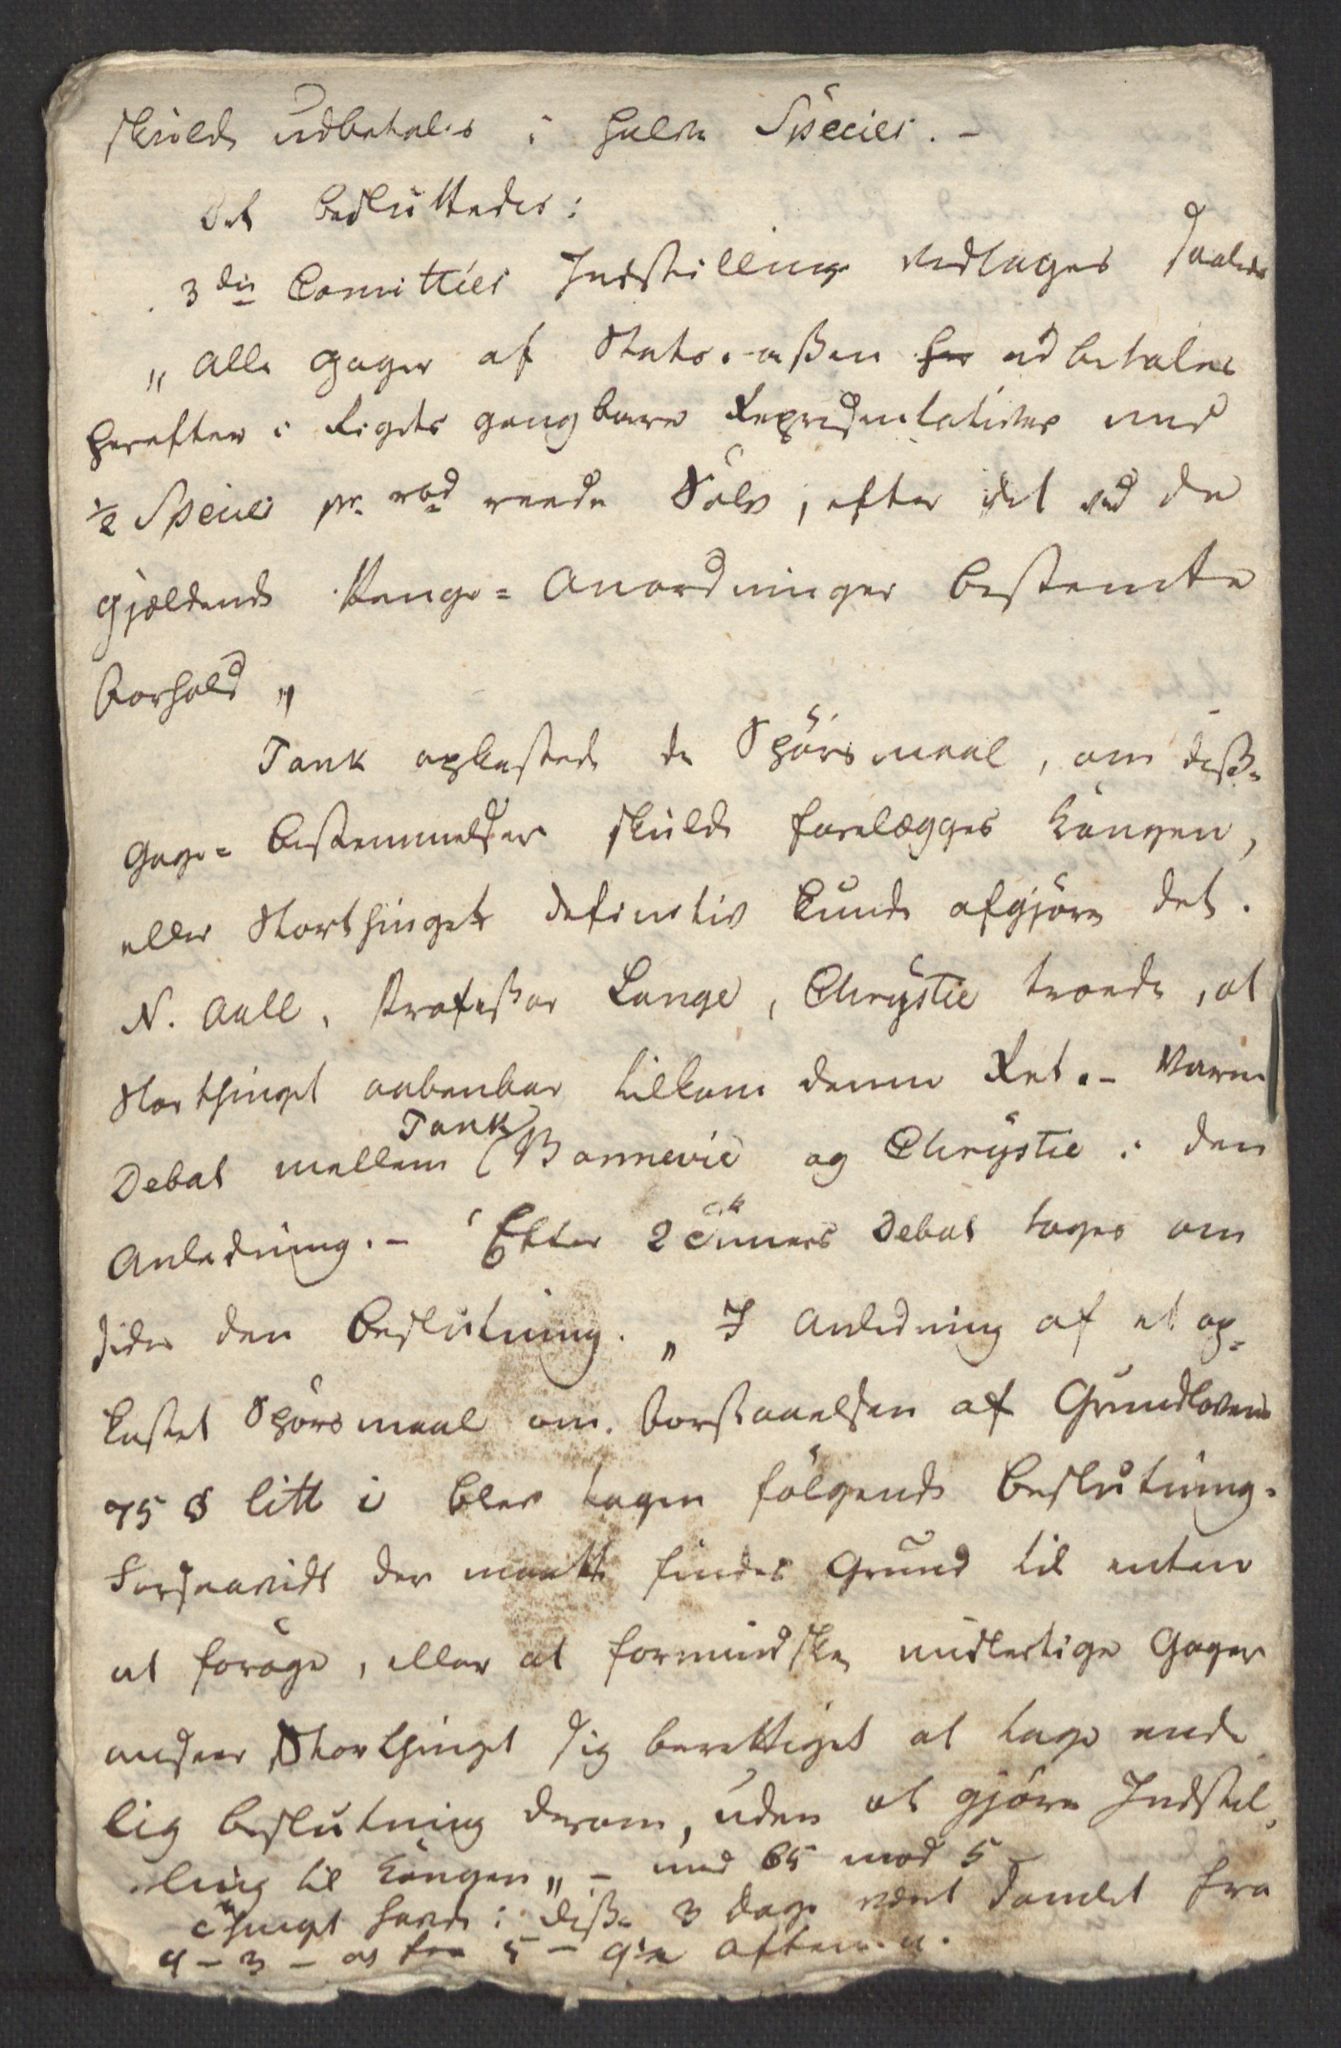 skulde udbetales i halve Species. –
Det besluttedes:
3die Comittées Indstilling vedtages saaledes
„Alle Gager af Statscassen her udbetales
herefter i Rigets gangbare Repræsentativer med
½ Species pr. rbd reede Sølv, efter det ved de
gjældende Penge= Anordninger bestemte
Forhold„
Tank opkastede de Spörsmaal, om disse
Gage= Bestemmelser skulde forelægges Kongen,
eller Storthinget definitiv kunde afgjöre det.
N. Aall, Professor Lange, Chrystie troede, at
Storthinget aabenbar tilkom denne Ret. – Varm
Tank
Debat mellem Bonnevie og Chrystie i den
Anledning. – Efter 2 Timers Debat toges om
sider den Beslutning. „I Anledning af et op=
kastet Spörsmaal om Forstaaelsen af Grundlovens
75 § litt i blev tagen fölgende Beslutning.
Forsaavidt der maatte findes Grund til enten
at foröge, eller at formindske midlertige Gager
anseer Storthinget sig berettiget at tage ende
lig Beslutning derom, uden at gjöre Indstil=
ling til Kongen„ – med 65 mod 5
Thinget havde i disse 3 Dage været samlet fra
9 – 3 – og fra 5 – 9 Aften.